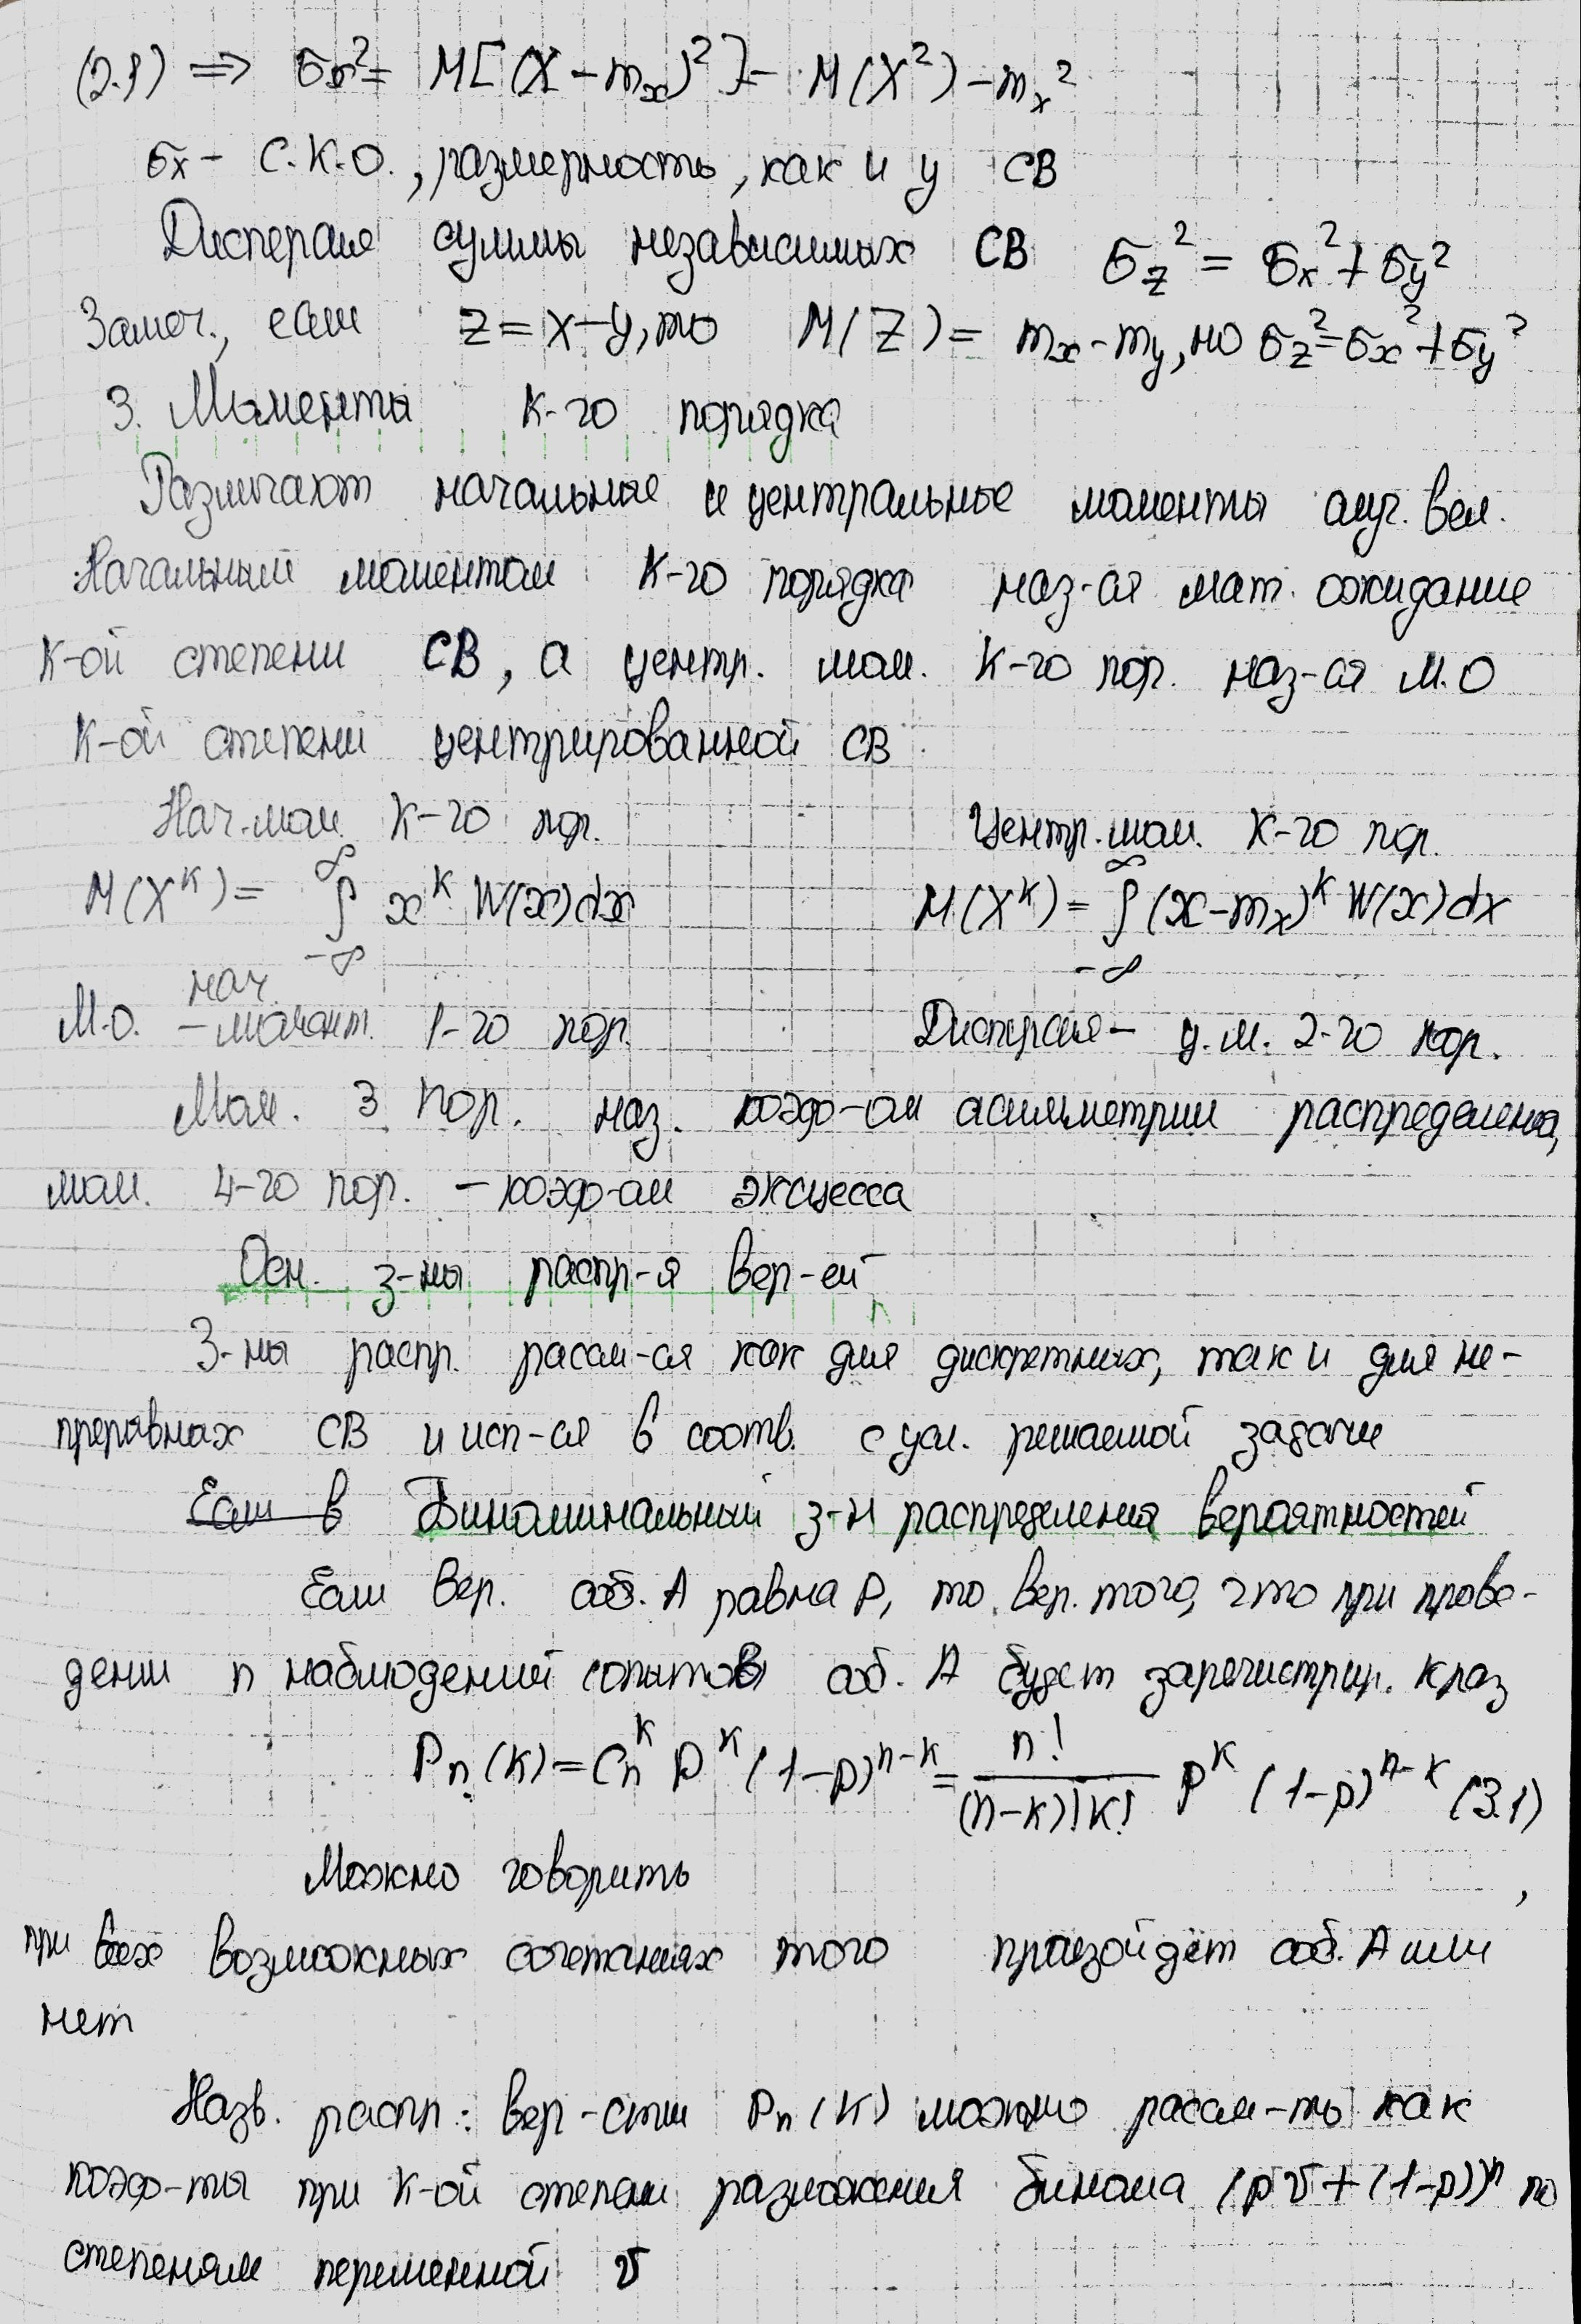 (2.9) => σx² = M[(X - mx)²] = M(X²) - mx²
σx - С.К.О., размерность, как и у СВ
Дисперсия суммы независимых СВ σz² = σx² + σy²
Замеч., если z = x - y, то M(Z) = mx - my, но σz² = σx² + σy²
3. Моменты К-го порядка
Различают начальные и центральные моменты случ. вел.
Начальным моментом К-го порядка наз-ся мат. ожидание
К-ой степени СВ, а центр. мом. К-го пор. наз-ся М.О
К-ой степени центрированной СВ
Нач. мом. К-го пор. Центр. мом. К-го пор.
M(X^K) = ∫_{-∞}^{∞} x^K W(x)dx M(X^K) = ∫_{-∞}^{∞} (x - mx)^K W(x)dx
нач.
М.О. - момент. 1-го пор. Дисперсия - ц.м. 2-го пор.
Мом. 3 пор. наз. коэф-ом асимметрии распределения,
мом. 4-го пор. - коэф-ом эксцесса
Осн. з-ны распр-я вер-ей
З-ны распр. рассм-ся как для дискретных, так и для не-
прерывных СВ и исп-ся в соотв. с усл. решаемой задачи
Если в Биноминальный з-н распределения вероятностей
Если вер. соб. А равна P, то вер. того, что при прове-
дении n наблюдений (опытов) соб. А будет зарегистрир. К раз
Pn(K) = Cn^K p^K (1-p)^{n-K} = n!/((n-K)!K!) P^K (1-p)^{n-K} (3.1)
Можно говорить ,
при всех возможных сочетаниях того произойдёт соб. А или
нет
Назв. распр: вер-сти Pn(K) можно рассм-ть как
коэф-ты при К-ой степени разложения бинома (pv + (1-p))^n по
степеням переменной v